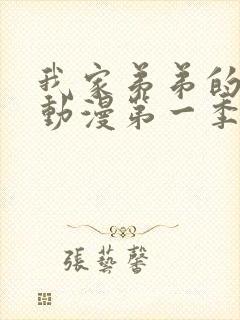 我家弟弟的
動漫第一季
張藝馨